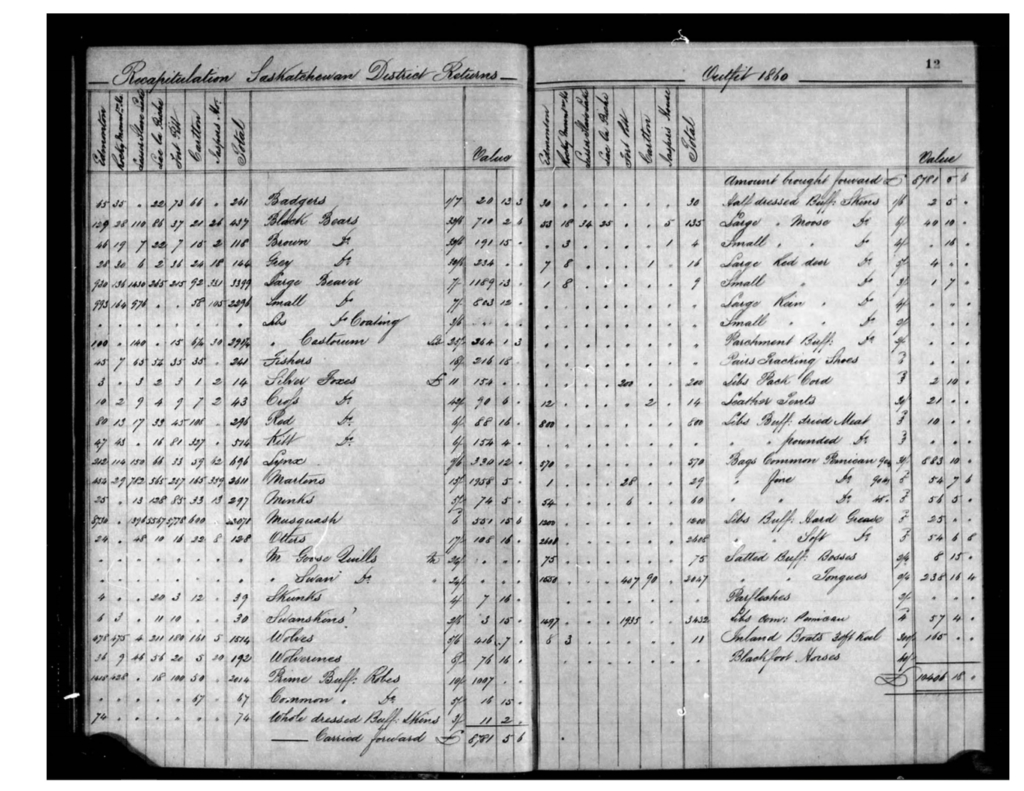 Recapitulation Saskatchewan District Returns
Edmonton Rocky Mount. Ho Lesser Slave Lake Lac la Biche Fort Pitt Carlton Jaspers Ho. Total Value
65 35 . 22 73 66 . 261 Badgers 1/7 20 13 3
129 28 110 86 37 21 26 437 Black Bears 710 2 6
46 19 7 22 7 15 2 118 Brown Do 191 15 .
28 30 6 2 36 24 18 144 Grey Do 234 . .
920 136 1430 265 215 92 331 3399 Large Beaver 7/ 1189 13 .
993 164 976 . . 58 105 2296 Small Do 7/ 803 12 .
. . . . . . . . Lbs Do Coating
100 . 140 . 15 Castorum 264 1 3
45 7 65 54 35 35 . 241 Fishers 18/ 216 18 .
3 . 3 2 3 1 2 14 Silver Foxes £ 11 154 . .
10 2 9 4 9 7 2 43 Cross Do 42/ 90 6 .
80 13 17 33 45 108 . 296 Red Do 6/ 88 16 .
47 43 . 16 81 327 . 514 Kitt Do 6/ 154 4 .
202 114 150 66 33 59 62 696 Lynx 9/6 330 12 .
29 782 365 217 165 359 2611 Martins 15/ 1958 5 .
25 . 13 128 85 33 13 297 Minks 5/ 74 5 .
Musquash 6 551 15 6
24 . 48 10 16 22 8 128 Otters 17/ 108 16 .
. . . . . . . . M Goose Quills
. . . . . . . . " Swan Do
4 . . 20 3 12 . 39 Skunks 4/ 7 16 .
6 3 . 11 10 . . 30 Swanskins 2/6 3 15 .
678 475 4 211 180 161 5 1514 Wolves 5/6 416 7 .
36 9 46 56 20 5 20 192 Wolverines 8/ 76 16 .
1418 428 . 18 100 50 . 2014 Prime Buff: Robes 10/ 1007 . .
. . . . . 67 . 67 Common " Do 5/ 16 15 .
74 . . . . . . 74 Whole dressed Buff: Skins 3/ 11 2 .
Carried forward £ 8781 5 6
Outfit 1860
12
Edmonton Rocky Mount. Ho Lesser Slave Lake Lac la Biche Fort Pitt Carlton Jaspers House Total Value
Amount brought forward £ 8781 5 6
30 . . . . . . 30 Half dressed Buff: Skins 1/6 2 5 .
53 18 34 25 . . 5 135 Large " Moose Do 6/ 40 10 .
. 3 . . . . 1 4 Small " " Do 4/ . 16 .
7 8 . . . 1 . 16 Large Red deer Do 5/ 4 . .
1 8 . . . . . 9 Small " Do 3/ 1 7 .
. . . . . . . . Large Rein " Do 4/ . .
. . . . . . . . Small " Do . .
. . . . . . . . Parchment Buff: Do . .
. . . . . . . . Pairs Tracking Shoes . .
. . . . 200 . . 200 Lbs Pack Cord 3 2 10 .
12 . . . . 2 . 14 Leather Tents 30/ 21 . .
800 . . . . . . 800 Lbs Buff: dried Meat 3 10 . .
. . . . . . . . " " pounded Do 3 . .
570 . . . . . . 570 Bags Common Pemican 90lb 883 10 .
1 . . . 28 . . 29 " Fine Do 90lb 54 7 6
54 . . . 6 . . 60 " " Do 45. 56 5 .
1200 . . . . . . 1200 Lbs Buff: Hard Grease 5 25 . .
2608 . . . . . . 2608 " " Soft Do 5 54 6 8
75 . . . . . . 75 Salted Buff: Bosses 2/4 8 15 .
1550 . . . 407 90 . 2047 " " Tongues 2/4 238 16 4
. . . . . . . . Parfleshes
1497 . . . 1935 . . 3432 Lbs com: Pemican 4 57 4 .
8 3 . . . . . 11 Inland Boats 30ft Keel 300/ 165 . .
Blackfoot Horses
£ 10406 18 .